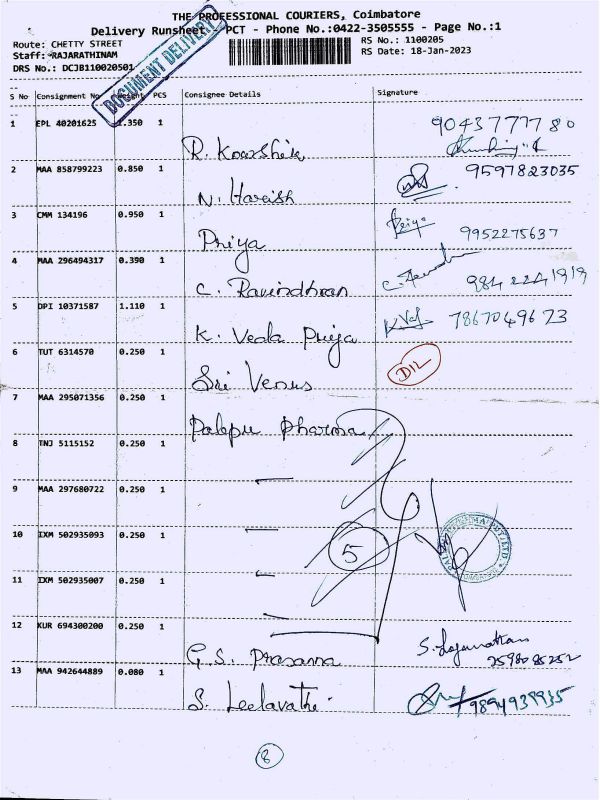 THE PROFESSIONAL COURIERS, Coimbatore
Delivery Runsheet - PCT - Phone No.:0422-3505555 - Page No.:1
Route: CHETTY STREET
RS No.: 1100205
Staff: RAJARATHINAM
RS Date: 18-Jan-2023
DRS No.: DCJB110020501
DOCUMENT DELIVERY
S No Consignment No Weight PCS Consignee Details Signature
1 EPL 40201625 1.350 1 9043777780
R. Kowshik
2 MAA 858799223 0.850 1 9597823035
N. Harish
3 CMM 134196 0.950 1 Priya 9952275637
Priya
4 MAA 296494317 0.390 1 9842241919
C. Ravindhran
5 DPI 10371587 1.110 1 7867049673
K. Veda Priya
6 TUT 6314570 0.250 1
Sri Venus
7 MAA 295071356 0.250 1
Palepu Pharma
8 TNJ 5115152 0.250 1
9 MAA 297680722 0.250 1
10 IXM 502935093 0.250 1
5
11 IXM 502935007 0.250 1
12 KUR 694300200 0.250 1
G.S. Prasanna
13 MAA 942644889 0.080 1 9894939935
S. Leelavathi
8